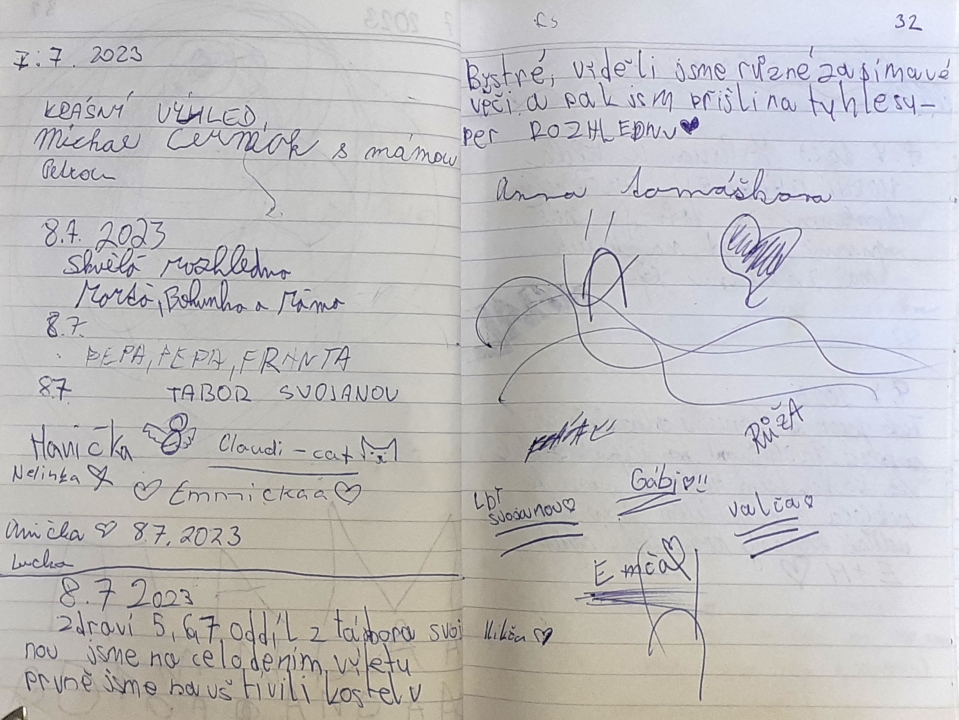 7.7. 2023
KRÁSNÝ VÝHLED,
Michal Černiak s mámou
Petrou
8.7. 2023
Skvělá rozhledna
Bohunka a Máma
8.7.
PEPA, PEPA, FRANTA
8.7 TABOR SVOJANOV
Hanička Claudi-cat
Nelinka
Emmičkaa
Anička 8.7. 2023
Lucka
8.7 2023
zdraví 5,6,7, oddíl z tábora svoj
nov jsme na celodením výletu
prvně jsme navštivili kostel v
32
Bystré, viděli jsme různé zajímavé
věci a pak jsm přišli na tyhle su-
per ROZHLEDNU
Anna Tomáškova
RŮŽA
Gábi!!
LDT
svojanov
valča
Emča